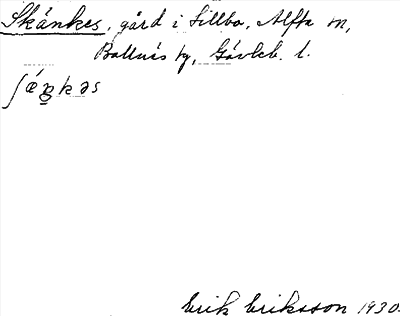 Skänkes, gård i Sillbo, Alfta sn,
Bollnäs tg, Gävleb. l.
ʃǽŋkəs
Erik Eriksson 1930.